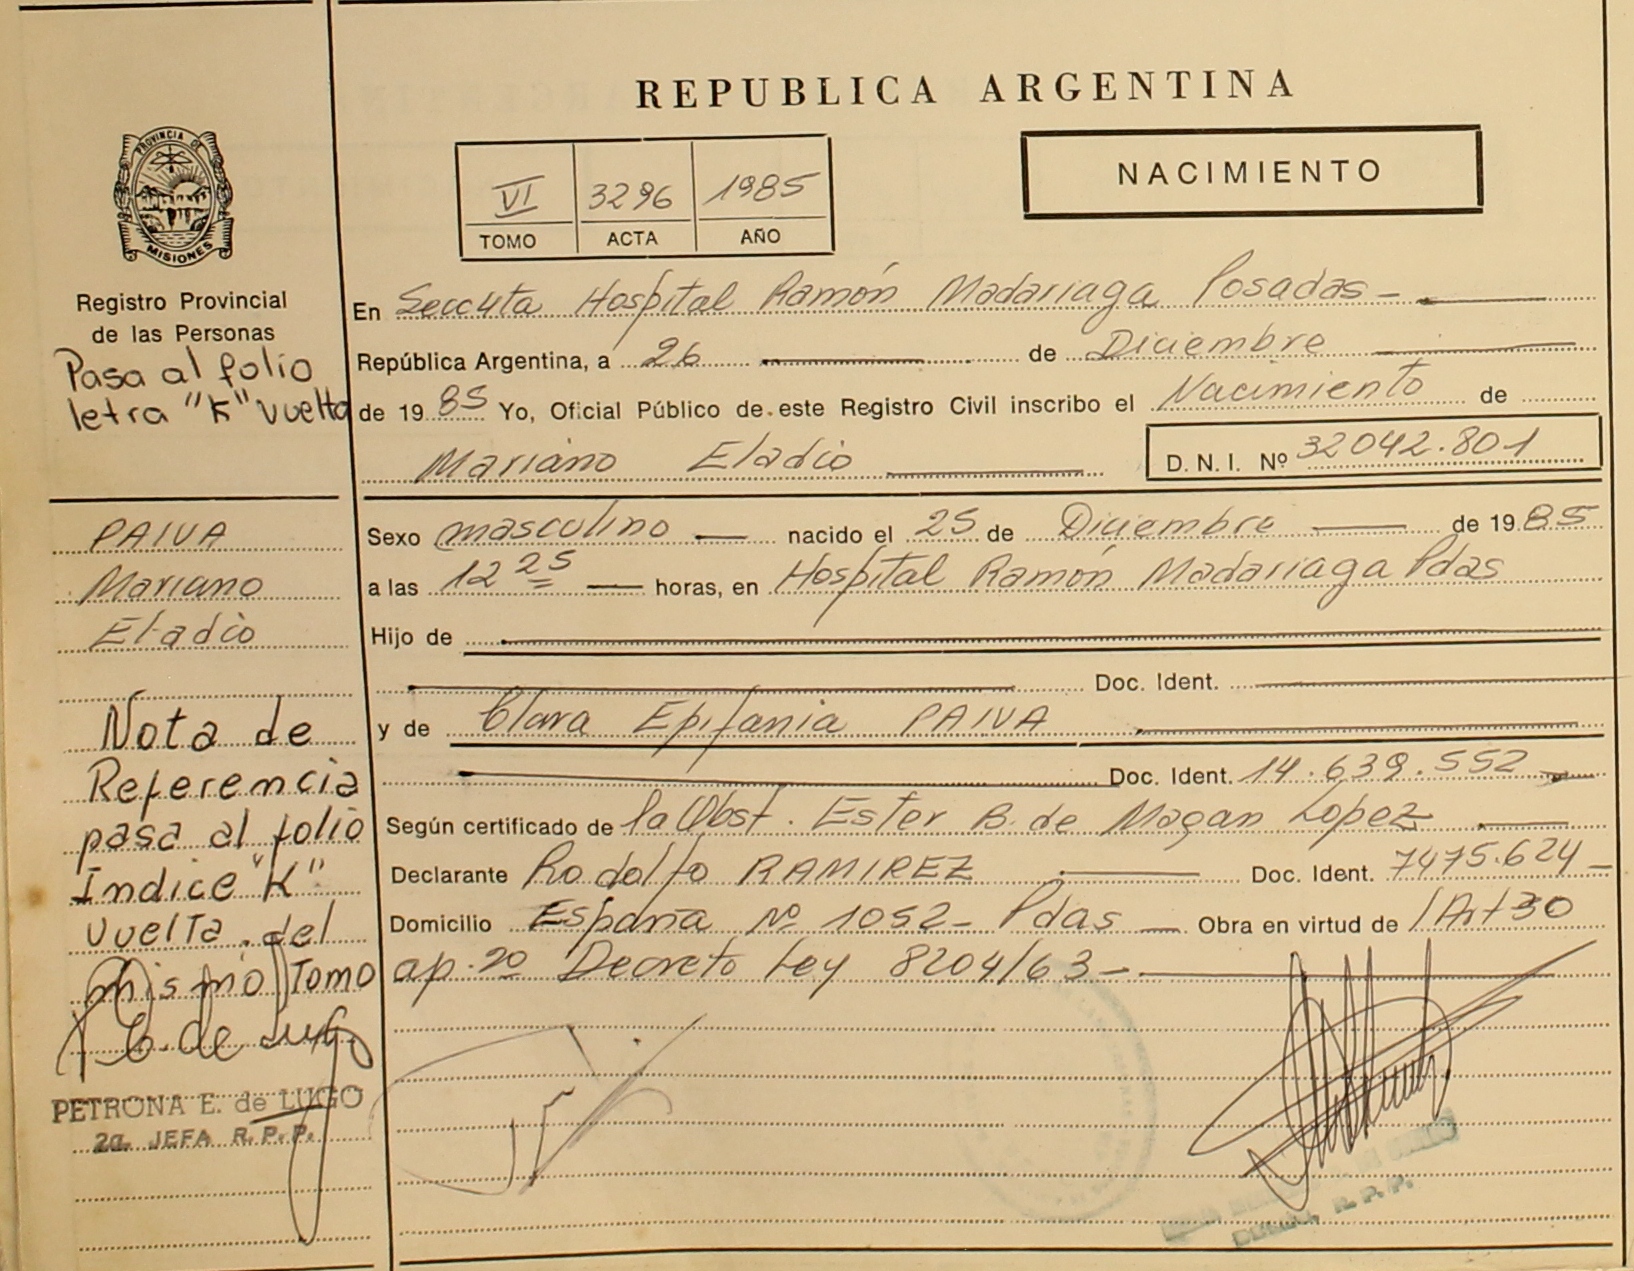 REPUBLICA ARGENTINA
PROVINCIA DE
MISIONES
VI 3296 1985
TOMO ACTA AÑO
NACIMIENTO
Registro Provincial
de las Personas
Pasa al folio
letra "K" vuelta
En Hospital Ramón Madariaga Posadas -
República Argentina, a 26 de Diciembre
de 1985 Yo, Oficial Público de este Registro Civil inscribo el Nacimiento de
Mariano Eladio D.N.I. Nº 32042.801
PAIVA
Mariano
Eladio
Sexo masculino nacido el 25 de Diciembre de 1985
a las 12 25 horas, en Hospital Ramón Madariaga Pdas
Hijo de
Doc. Ident.
y de Clara Epifania PAIVA
Doc. Ident. 14.639.552
Según certificado de la Obst. Ester B. de Lopez
Declarante Rodolfo RAMIREZ Doc. Ident. 7475.624
Domicilio España Nº 1052 - Pdas Obra en virtud de /Art 30
ap. 2º Decreto Ley 8204/63 -
Nota de
Referencia
pasa al folio
Indice "K"
vuelta del
mismo Tomo
E. de Lugo
PETRONA E. de LUGO
2a. JEFA R.P.P.
R. P. P.